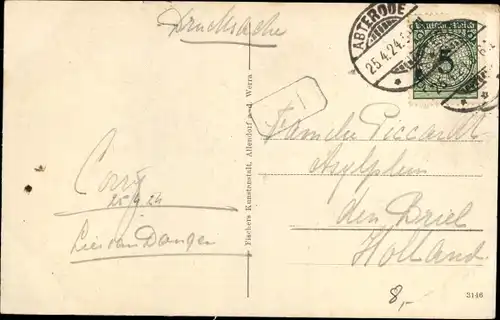 Drucksache
ABTERODE
25.4.24.
Deutsches Reich
5
Familie Piccardt
Asylplein
den Briel
Holland.
Corry
25/4 24
Lies van Dongen
Fischers Kunstanstalt, Allendorf a. d. Werra
8,-
3146